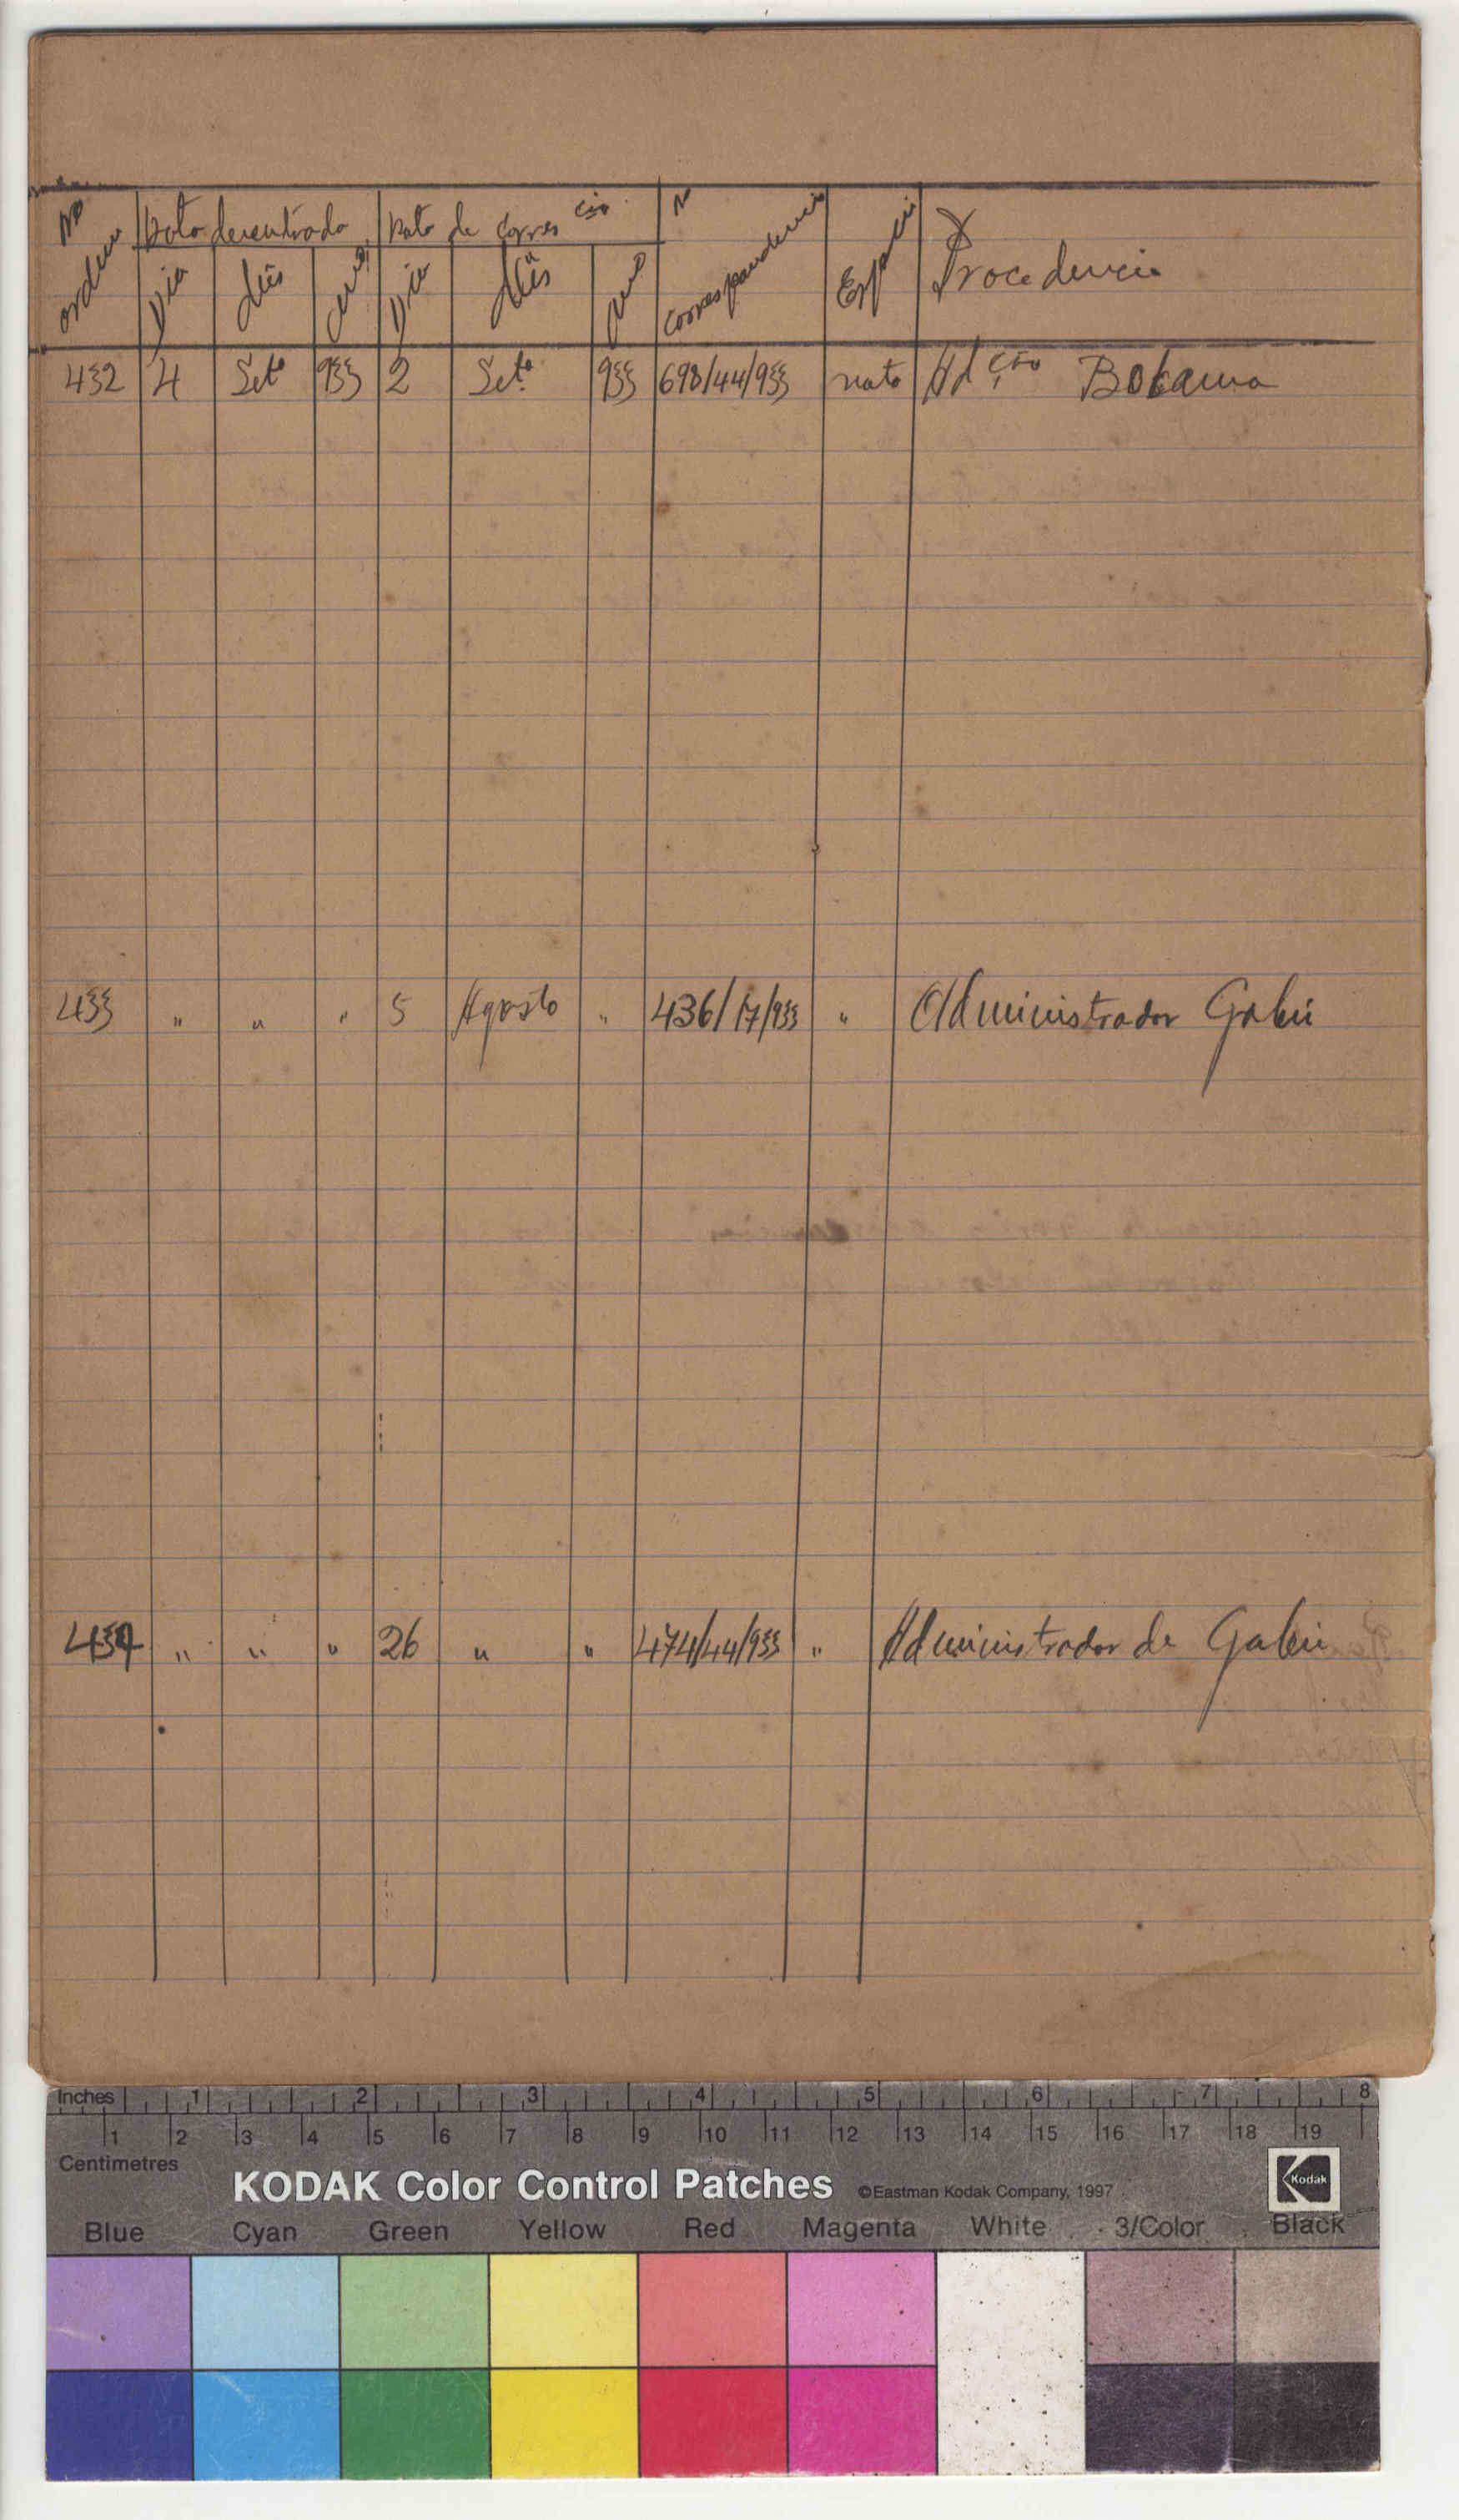 No ordem | Data de entrada | Data de Corres cia | N correspondencia | Especie | Procedencia
Dia | Mês | ano | Dia | Mês | ano
432 | 4 | Setº | 933 | 2 | Setº | 933 | 698/44/933 | nota | Adção Bolama
433 | " | " | " | 5 | Agosto | " | 436/17/933 | " | Administrador Gabú
434 | " | " | " | 26 | " | " | 474/44/933 | " | Administrador de Gabú
Inches 1 2 3 4 5 6 7 8
1 2 3 4 5 6 7 8 9 10 11 12 13 14 15 16 17 18 19
Centimetres
KODAK Color Control Patches ©Eastman Kodak Company, 1997 Kodak
Blue Cyan Green Yellow Red Magenta White 3/Color Black